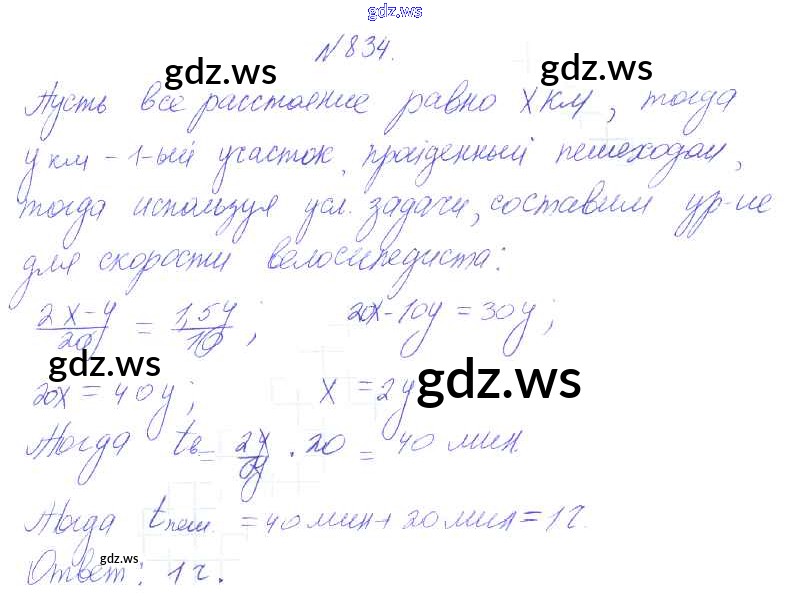 gdz.ws
№834.
gdz.ws gdz.ws
Пусть все расстояние равно x км, тогда
y км - 1-ый участок, пройденный пешеходом,
тогда используя усл. задачи, составим ур-ие
для скорости велосипедиста:
2x-y/20 = 1,5y/10; 20x-10y=30y;
gdz.ws gdz.ws
20x=40y; x=2y
Тогда tв = 2y/y · 20 = 40 мин.
Тогда tпеш. = 40 мин + 20 мин = 1 ч.
gdz.ws
Ответ: 1 ч.